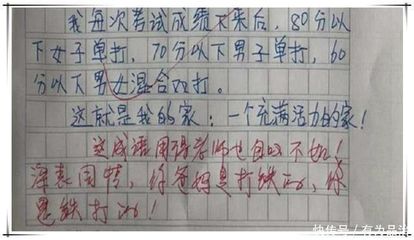 我每次考试成绩下来后，80分以
下女子单打，70分以下男子单打，60
分以下男女混合双打。
这就是我的家：一个充满活力的家！
这成语用得老师也自叹不如！
深表同情，你爸妈是打铁的，你
是铁打的！
快传号/有为品论